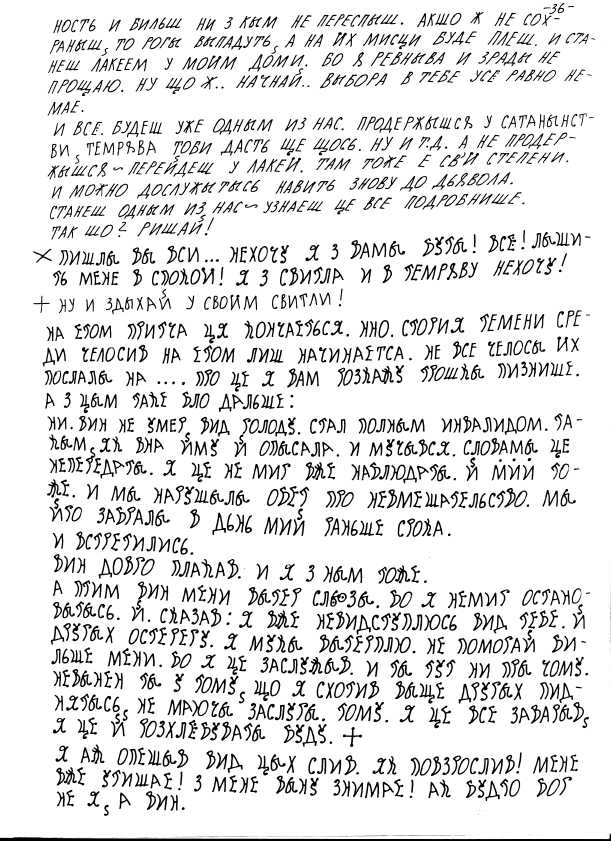 -36-
НОСТЬ И БИЛЬШ НИ З КЫМ НЕ ПЕРЕСПЫШ. АКШО Ж НЕ СОХ-
РАНЫШ, ТО РОГЫ ВЫПАДУТЬ, А НА ЙХ МИСЦИ БУДЕ ПЛЕШ. И СТА-
НЕШ ЛАКЕЕМ У МОЙМ ДОМИ. БО Я РЕВНЫВА И ЗРАДЫ НЕ
ПРОЩАЮ. НУ ЩО Ж.. НАЧНАЙ.. ВЫБОРА В ТЕБЕ УСЕ РАВНО НЕ-
МАЕ.
И ВСЕ. БУДЕШ УЖЕ ОДНЫМ ИЗ НАС. ПРОДЕРЖЫШСЯ У САТАНЫНСТ-
ВИ, ТЕМРЯВА ТОБИ ДАСТЬ ЩЕ ЩОСЬ. НУ И Т.Д. А НЕ ПРОДЕР-
ЖЫШСЯ ~ ПЕРЕЙДЕШ У ЛАКЕЙ. ТАМ ТОЖЕ Е СВЙ СТЕПЕНИ.
И МОЖНО ДОСЛУЖЫТЫСЬ НАВИТЬ ЗНОВУ ДО ДЬЯВОЛА.
СТАНЕШ ОДНЫМ ИЗ НАС ~ УЗНАЕШ ЦЕ ВСЕ ПОДРОБНИШЕ.
ТАК ШО? РИШАЙ!
× ПИШЛЫ ВЫ ВСИ... НЕХОЧУ Я З ВАМЫ БУТЫ! ВСЕ! ЛЫШИ-
ТЬ МЕНЕ В СПОКОЙ! Я З СВИТЛА И В ТЕМРЯВУ НЕХОЧУ!
+ НУ И ЗДЫХАЙ У СВОИМ СВИТЛИ!
НА ЕТОМ ПРИТЧА ЦЯ КОНЧАЕТЬСЯ. ННО. СТОРИЯ ТЕМЕНИ СРЕ-
ДИ ЧЕЛОСИВ НА ЕТОМ ЛИШ НАЧИНАЕТСА. НЕ ВСЕ ЧЕЛОСЫ ИХ
ПОСЛАЛЫ НА .... ПРО ЦЕ Я ВАМ РОЗКАЖУ ТРОШКЫ ПИЗНИШЕ.
А З ЦЫМ ТАКЕ БЛО ДАЛЬШЕ:
НИ. ВИН НЕ УМЕР, ВИД ГОЛОДУ. СТАЛ ПОЛНЫМ ИНВАЛИДОМ. ТА-
КЫМ, ЯК ВНА ЙМУ Й ОПЫСАЛА. И МУЧЫВСЯ. СЛОВАМЫ ЦЕ
НЕПЕРЕДАТЫ. Я ЦЕ НЕ МИГ ВЖЕ НАБЛЮДАТЫ. Й МИЙ ТО-
ЖЕ. И МЫ НАРУШЫЛЫ ОБЕТ ПРО НЕВМЕШАТЕЛЬСТВО. МЫ
ЙГО ЗАБРАЛЫ В ДЬНЬ МИЙ РАНЬШЕ СРОКА.
И ВСТРЕТИЛИСЬ.
ВИН ДОВГО ПЛАКАВ. И Я З НЫМ ТОЖЕ.
А ПТИМ ВИН МЕНИ ВЫТЕР СЛЬОЗЫ. БО Я НЕМИГ ОСТАНО-
ВЫТЫСЬ. Й. СКАЗАВ: Я ВЖЕ НЕВИДСТУПЛЮСЬ ВИД ТЕБЕ. Й
ДРУГЫХ ОСТЕРЕГУ. Я МУКЫ ВЫТЕРПЛЮ. НЕ ПОМОГАЙ БИ-
ЛЬШЕ МЕНИ. БО Я ЦЕ ЗАСЛУЖЫВ. И ТЫ ТУТ НИ ПРЫ ЧОМУ.
НЕВЫНЕН ТЫ У ТОМУ, ЩО Я СХОТИВ ВЫЩЕ ДРУГЫХ ПИД-
НЯТЫСЬ, НЕ МАЮЧЫ ЗАСЛУГЫ. ТОМУ. Я ЦЕ ВСЕ ЗАВАРЫВ,
Я ЦЕ Й РОЗХЛЕБУВАТЫ БУДУ. +
Я АЖ ОПЕШЫВ ВИД ЦЫХ СЛИВ. ЯК ПОВЗРОСЛИВ! МЕНЕ
ВЖЕ УТИШАЕ! З МЕНЕ ВЫНУ ЗНИМАЕ! АЖ БУДТО БОГ
НЕ Я, А ВИН.